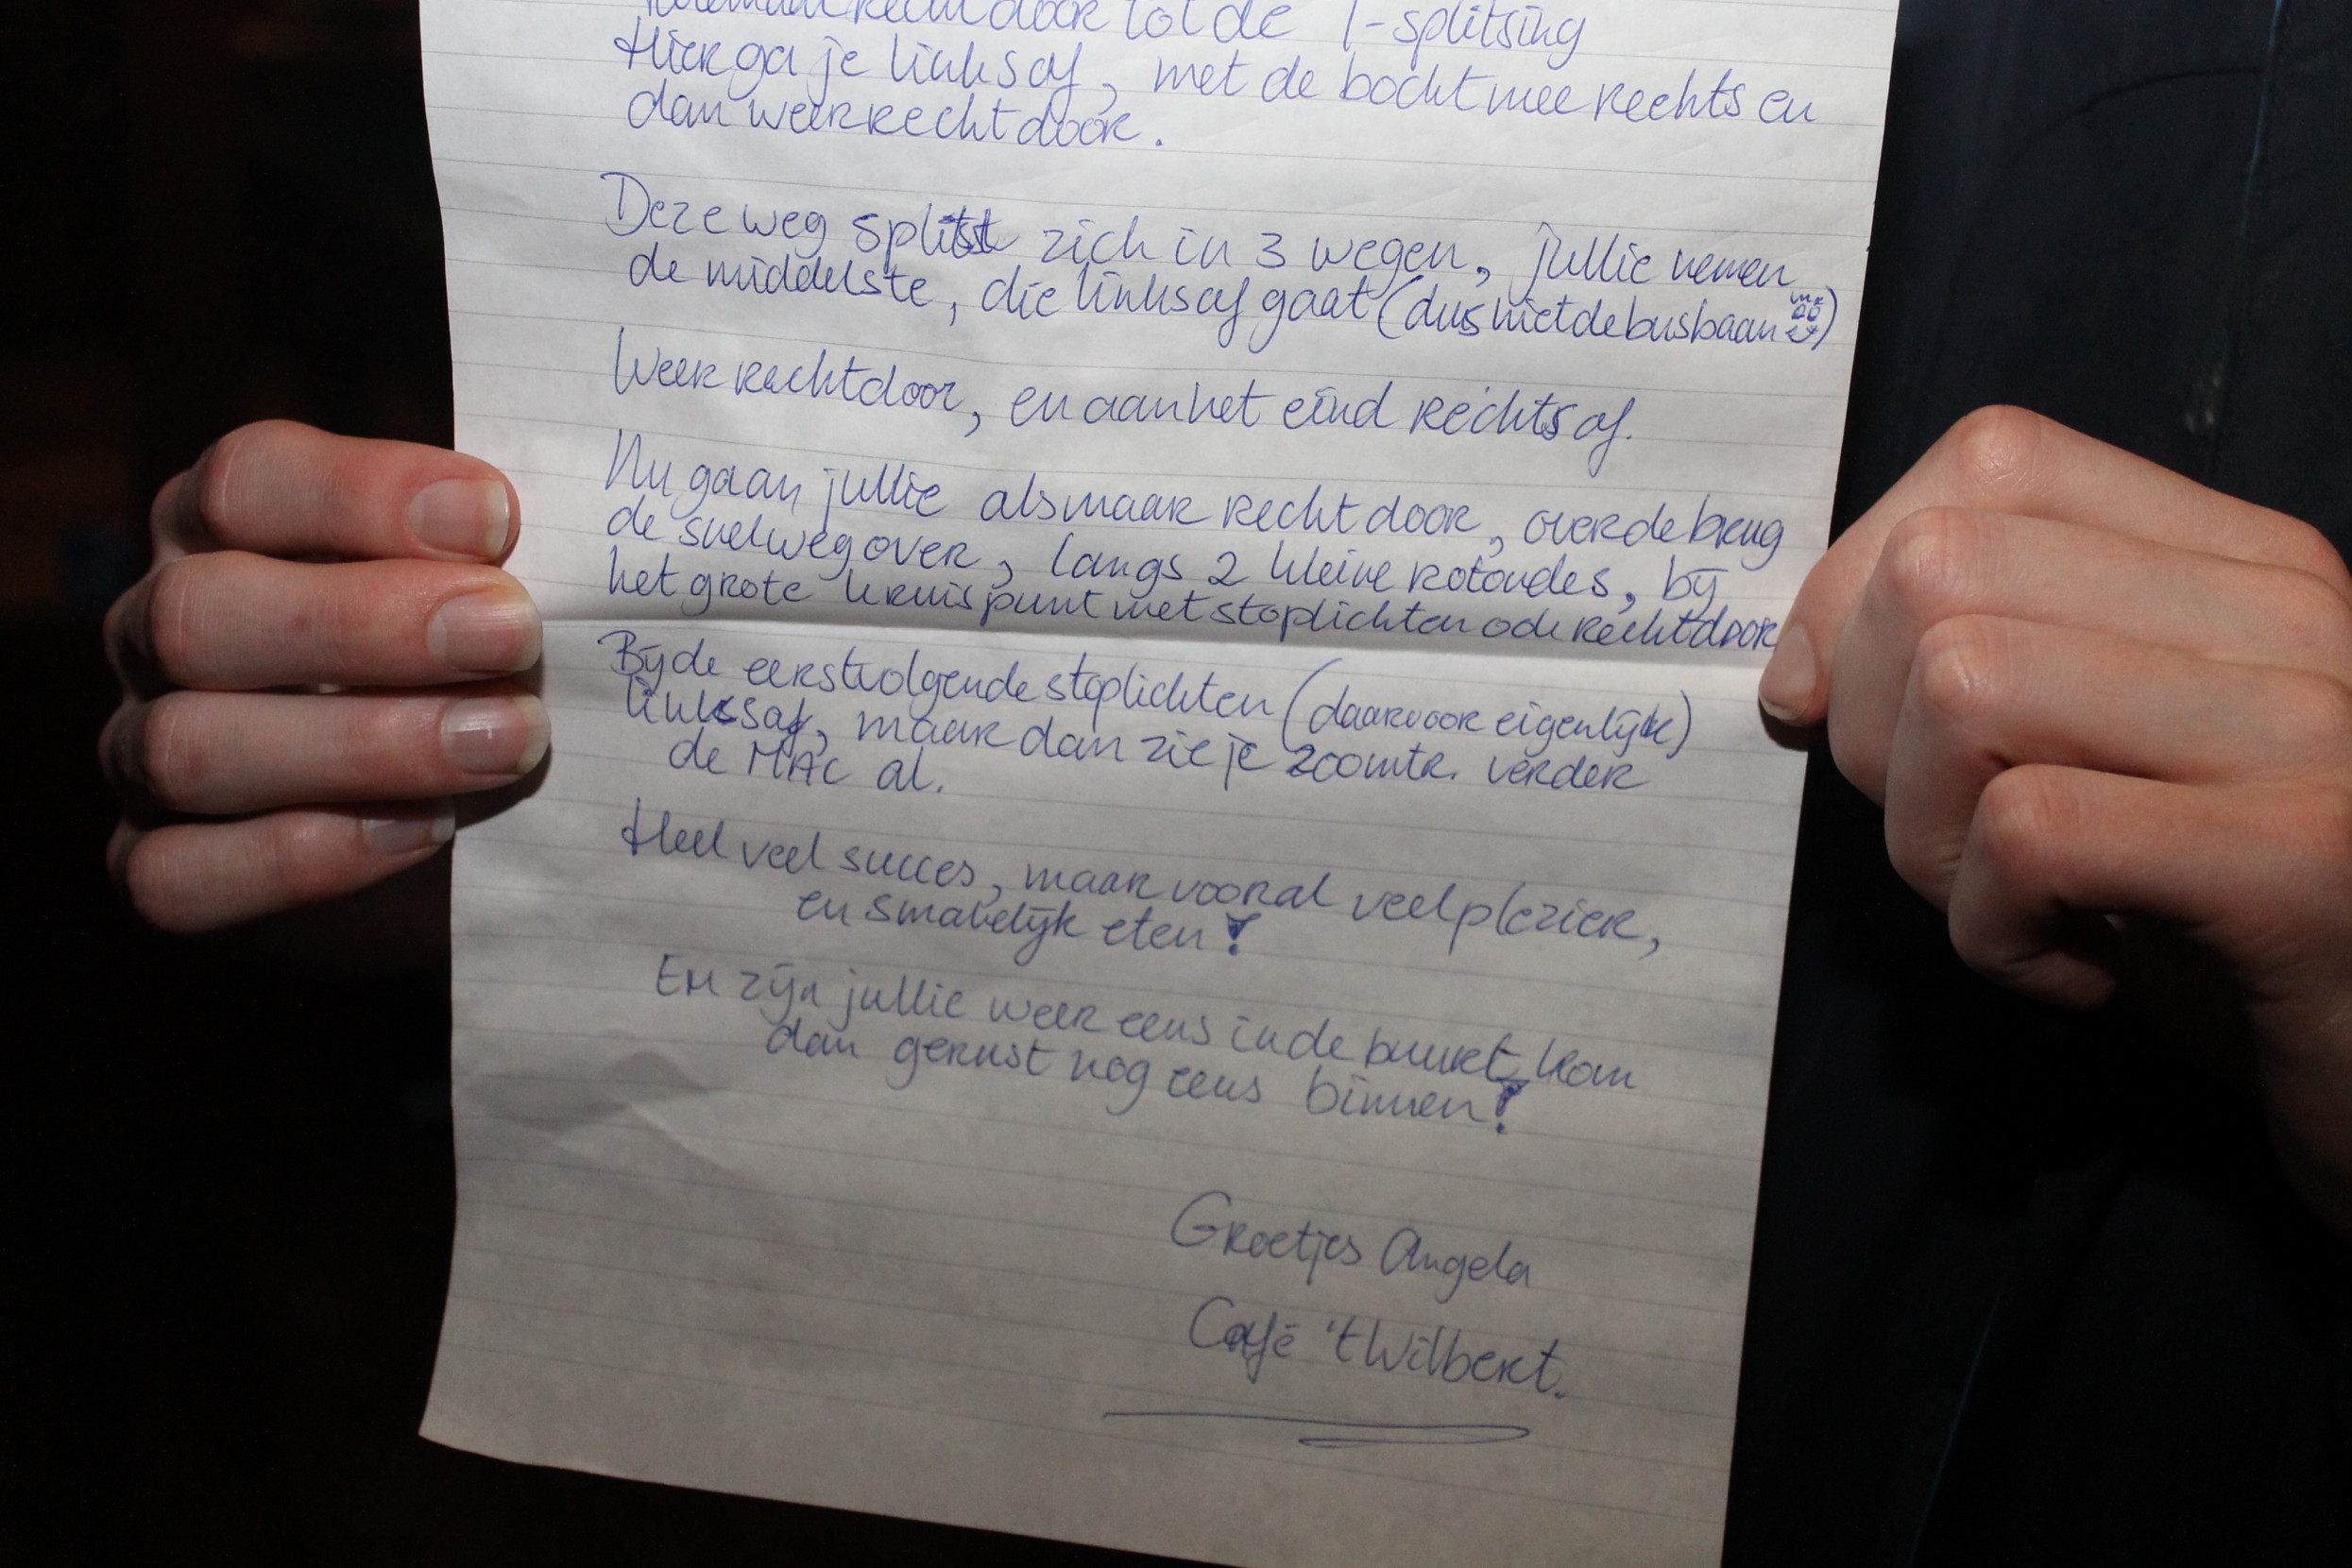 recht door tot de T-splitsing
Hier ga je linksaf, met de bocht mee rechts en
dan weer recht door.
Deze weg splitst zich in 3 wegen, jullie nemen
de middelste, die linksaf gaat (dus niet de busbaan)
Weer rechtdoor, en aan het eind rechtsaf.
Nu gaan jullie alsmaar recht door, over de brug
de snelweg over, langs 2 kleine rotondes, bij
het grote kruispunt met stoplichten ook rechtdoor
Bij de eerstvolgende stoplichten (daarvoor eigenlijk)
linksaf, maar dan zie je 200mtr. verder
de MAC al.
Heel veel succes, maar vooral veel plezier,
en smakelijk eten!
En zijn jullie weer eens in de buurt, kom
dan gerust nog eens binnen!
Groetjes Angela
Café 't Wilbert.